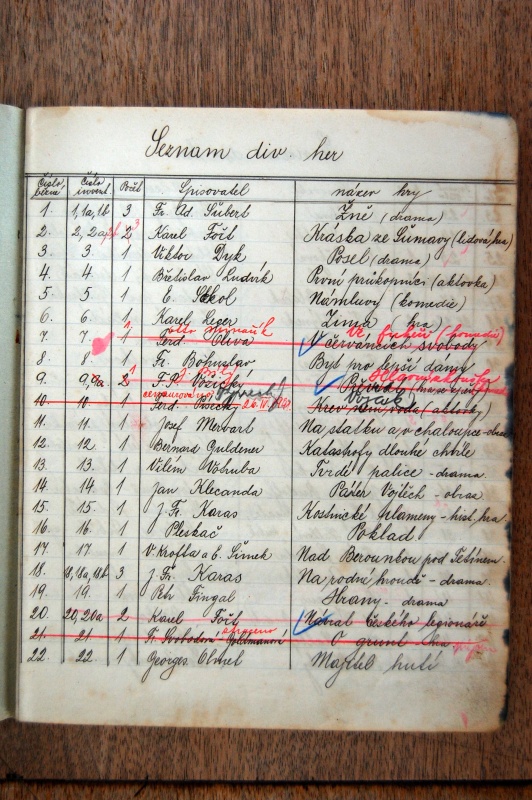 Seznam div. her
Číslo běžné Číslo invent. Počet Spisovatel název hry
1. 1, 1a, 1b 3 Fr. Ad. Šubert Žně (drama)
2. 2, 2a, 2b 2 3 Karel Fořt Kráska ze Šumavy (lidová hra)
3. 3. 1 Viktor Dyk Posel (drama)
4. 4. 1 Břetislav Ludvík První průkopníci (aktovka)
5. 5 1 E. Sokol Námluvy (komedie)
6. 6. 1 Karel Leger Zima (hra)
7. 7 1 Ferd. Oliva V červáncích svobody
8. 8 1 Fr. Bohuslav Byt pro lepší dámy
9. 9, 9a 2
10. 10 1 Ferd. Krev není voda (aktovka)
11. 11. 1 Josef Merhart Na statku a v chaloupce
12. 12. 1 Bernard Guldener Katastrofy dlouhé chvíle
13. 13. 1 Vilém Votruba Tvrdé palice - drama
14. 14. 1 Jan Klecanda Páter Vojtěch - obraz
15. 15. 1 J. Fr. Karas Kostnické plameny - hist. hra
16. 16. 1 Pleskač Poklad
17. 17. 1 V. Krofta a b. Šimek Nad Berounkou pod Tetínem
18. 18, 18a, 18b 3 J. Fr. Karas Na rodné hroudě - drama
19. 19. 1 Petr Fingal Hrany - drama
20. 20, 20a 2 Karel Fořt Návrat českého legionáře
21. 21 1 Fr. Svobodová O grunt - hra
22. 22 1 Georges Ohnet Majitel hutí